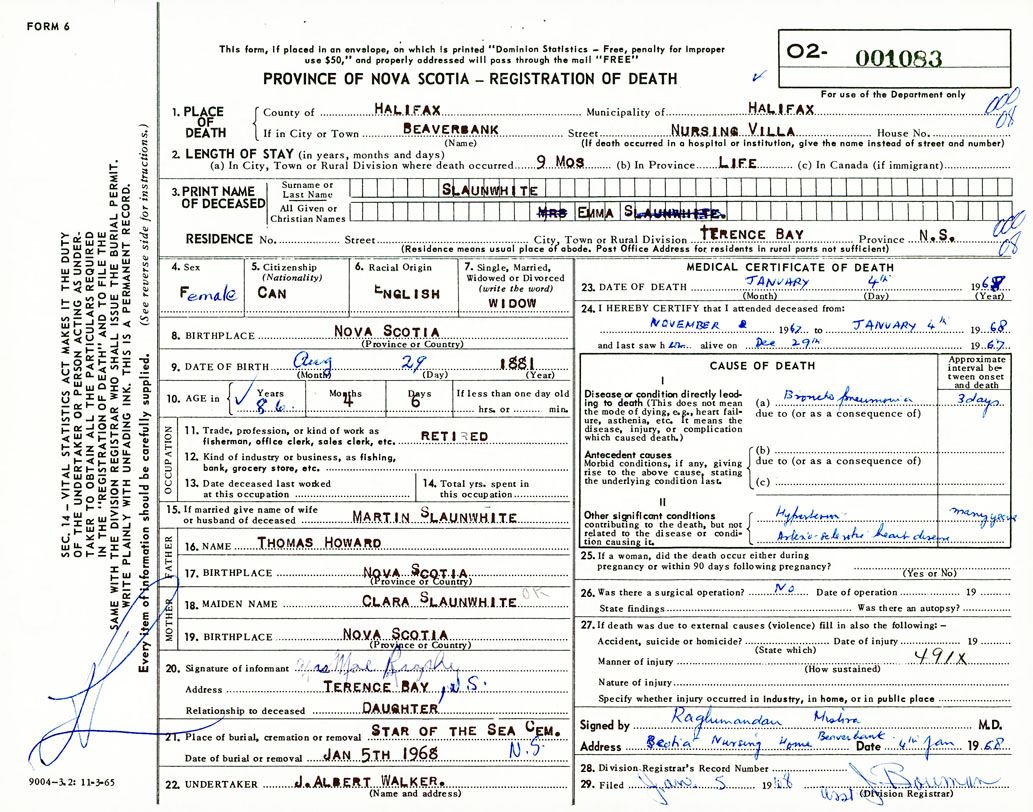 FORM 6
This form, if placed in an envelope, on which is printed "Dominion Statistics – Free, penalty for improper
use $50," and properly addressed will pass through the mail "FREE"
PROVINCE OF NOVA SCOTIA – REGISTRATION OF DEATH
02- 001083
For use of the Department only
1. PLACE OF DEATH
County of HALIFAX Municipality of HALIFAX
If in City or Town BEAVERBANK Street NURSING VILLA House No.
(Name) (If death occurred in a hospital or institution, give the name instead of street and number)
2. LENGTH OF STAY (in years, months and days)
(a) In City, Town or Rural Division where death occurred 9 MOS (b) In Province LIFE (c) In Canada (if immigrant)
3. PRINT NAME OF DECEASED
Surname or Last Name SLAUNWHITE
All Given or Christian Names MRS EMMA SLAUNWHITE.
RESIDENCE No. Street City, Town or Rural Division TERENCE BAY Province N.S.
(Residence means usual place of abode. Post Office Address for residents in rural parts not sufficient)
000
08
000
08
4. Sex Female
5. Citizenship (Nationality) CAN
6. Racial Origin ENGLISH
7. Single, Married, Widowed or Divorced (write the word) WIDOW
8. BIRTHPLACE NOVA SCOTIA
(Province or Country)
9. DATE OF BIRTH Aug 29 1881
(Month) (Day) (Year)
10. AGE in Years 86 Months 4 Days 6 If less than one day old hrs. or min.
OCCUPATION
11. Trade, profession, or kind of work as fisherman, office clerk, sales clerk, etc. RETIRED
12. Kind of industry or business, as fishing, bank, grocery store, etc.
13. Date deceased last worked at this occupation
14. Total yrs. spent in this occupation
15. If married give name of wife or husband of deceased MARTIN SLAUNWHITE
FATHER
16. NAME THOMAS HOWARD
17. BIRTHPLACE NOVA SCOTIA
(Province or Country)
MOTHER
18. MAIDEN NAME CLARA SLAUNWHITE OK
19. BIRTHPLACE NOVA SCOTIA
(Province or Country)
20. Signature of informant Mrs Mae
Address TERENCE BAY, N.S.
Relationship to deceased DAUGHTER
21. Place of burial, cremation or removal STAR OF THE SEA CEM.
N.S.
Date of burial or removal JAN 5TH 1968
22. UNDERTAKER J. ALBERT WALKER.
(Name and address)
MEDICAL CERTIFICATE OF DEATH
23. DATE OF DEATH JANUARY 4th 1968
(Month) (Day) (Year)
24. I HEREBY CERTIFY that I attended deceased from:
NOVEMBER 1967 to JANUARY 4th 1968
and last saw her alive on Dec 29th 1967
CAUSE OF DEATH
Approximate interval between onset and death
I
Disease or condition directly leading to death (This does not mean the mode of dying, e.g., heart failure, asthenia, etc. It means the disease, injury, or complication which caused death.)
(a) Broncho pneumonia 3 days
due to (or as a consequence of)
Antecedent causes
Morbid conditions, if any, giving rise to the above cause, stating the underlying condition last.
(b)
due to (or as a consequence of)
(c)
II
Other significant conditions contributing to the death, but not related to the disease or condition causing it.
Hypertension many years
Arterio-sclerotic heart disease
25. If a woman, did the death occur either during pregnancy or within 90 days following pregnancy?
(Yes or No)
26. Was there a surgical operation? No Date of operation 19
State findings Was there an autopsy?
27. If death was due to external causes (violence) fill in also the following: –
Accident, suicide or homicide? Date of injury 19
(State which)
Manner of injury 491X
(How sustained)
Nature of injury
Specify whether injury occurred in industry, in home, or in public place
Signed by Raghunandan Mishra M.D.
Address Scotia Nursing Home Beaverbank Date 4th Jan 1968
28. Division Registrar's Record Number
29. Filed Jan. 5 1968 J. Bowman
Asst (Division Registrar)
SEC. 14 – VITAL STATISTICS ACT MAKES IT THE DUTY
OF THE UNDERTAKER OR PERSON ACTING AS UNDER-
TAKER TO OBTAIN ALL THE PARTICULARS REQUIRED
IN THE "REGISTRATION OF DEATH" AND TO FILE THE
SAME WITH THE DIVISION REGISTRAR WHO SHALL ISSUE THE BURIAL PERMIT.
WRITE PLAINLY WITH UNFADING INK. THIS IS A PERMANENT RECORD.
Every item of information should be carefully supplied. (See reverse side for instructions.)
9004-3.2: 11-3-65